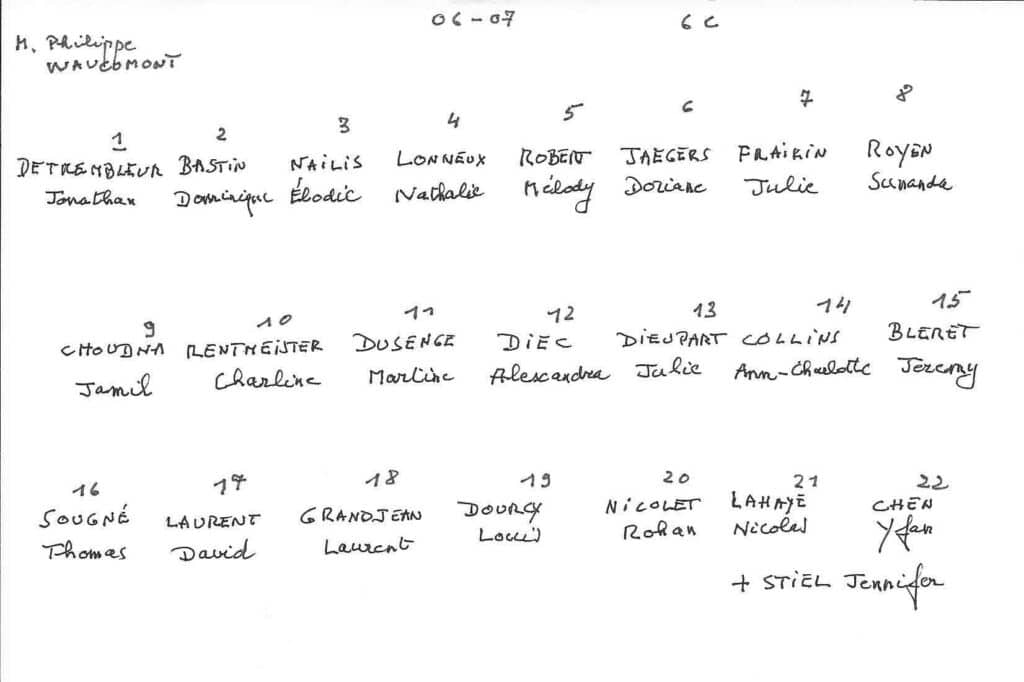 06-07 6C
M. Philippe
WAUCOMONT
1 2 3 4 5 6 7 8
DETREMBLEUR BASTIN NAILIS LONNEUX ROBERT JAEGERS FRAIKIN ROYEN
Jonathan Dominique Élodie Nathalie Mélody Doriane Julie Sunanda
9 10 11 12 13 14 15
CHOUDNA RENTMEISTER DUSENGE DIEC DIEUPART COLLINS BLERET
Jamil Charline Martine Alexandra Julie Ann-Charlotte Jeremy
16 17 18 19 20 21 22
SOUGNÉ LAURENT GRANDJEAN DOURCY NICOLET LAHAYE CHEN
Thomas David Laurent Louis Rohan Nicolas Yfan
+ STIEL Jennifer